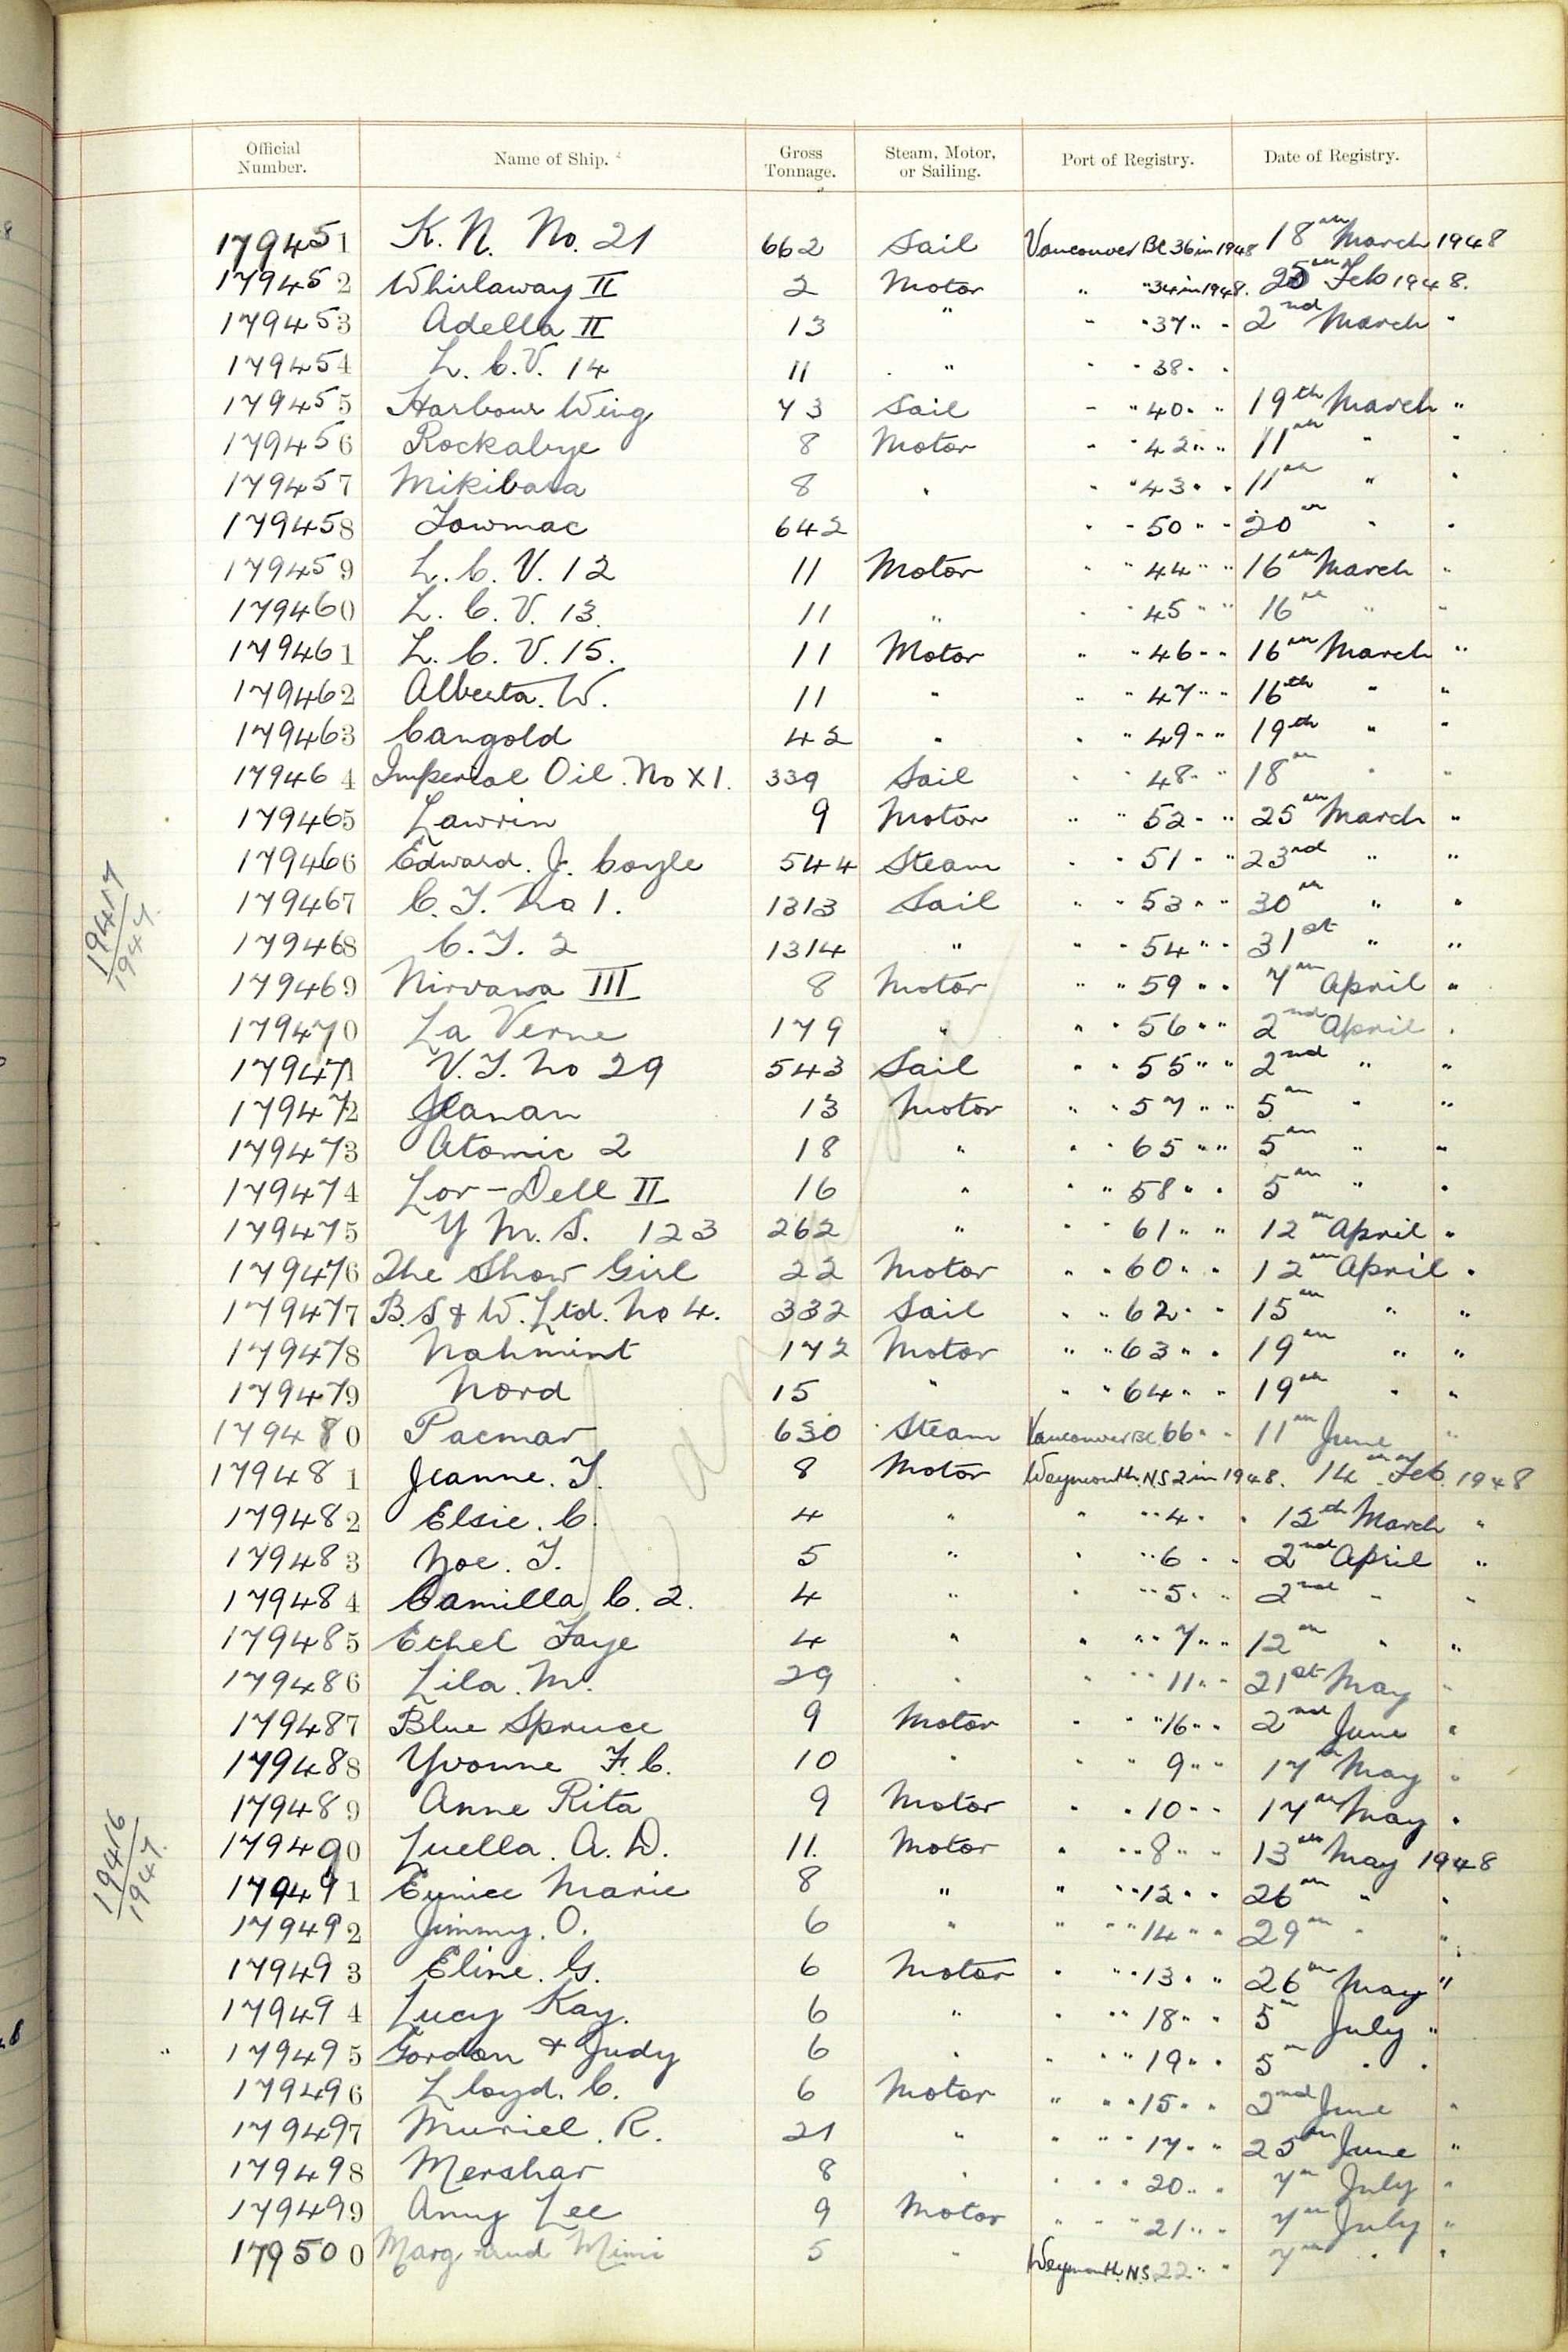 Official Number. Name of Ship. Gross Tonnage. Steam, Motor, or Sailing. Port of Registry. Date of Registry.
179451 K. N. No. 21 662 Sail Vancouver BC 36 in 1948 18th March 1948
179452 Whirlaway II 2 Motor " " 34 in 1948. 25th Feb 1948.
179453 Adella II 13 " " " 37 " " 2nd March "
179454 L. C. V. 14 11 " " " 38 " "
179455 Harbour Wing 73 Sail " " 40 " " 19th March "
179456 Rockabye 8 Motor " " 42 " " 11th " "
179457 Mikibara 8 " " " 43 " " 11th " "
179458 Towmac 642 " " 50 " " 20th " "
179459 L. C. V. 12 11 Motor " " 44 " " 16th March "
179460 L. C. V. 13. 11 " " " 45 " " 16th " "
179461 L. C. V. 15. 11 Motor " " 46 " " 16th March "
179462 Alberta. W. 11 " " " 47 " " 16th " "
179463 Cangold 42 " " " 49 " " 19th " "
179464 Imperial Oil. No X1. 339 Sail " " 48 " " 18th " "
179465 Lawrin 9 Motor " " 52 " " 25th March "
179466 Edward. J. Coyle 544 Steam " " 51 " " 23rd " "
179467 C. T. No 1. 1313 Sail " " 53 " " 30th " "
19417
1947.
179468 C. T. 2 1314 " " " 54 " " 31st " "
179469 Nirvana III 8 Motor " " 59 " " 7th April "
179470 La Verne 179 " " " 56 " " 2nd April "
179471 V. T. No 29 543 Sail " " 55 " " 2nd " "
179472 Jeanan 13 Motor " " 57 " " 5th " "
179473 Atomic 2 18 " " " 65 " " 5th " "
179474 Lor-Dell II 16 " " " 58 " " 5th " "
179475 Y M. S. 123 262 " " " 61 " " 12th April "
179476 The Show Girl 22 Motor " " 60 " " 12th April "
179477 B. S & W. Ltd. No 4. 332 Sail " " 62 " " 15th " "
179478 Nahmint 172 Motor " " 63 " " 19th " "
179479 Nord 15 " " " 64 " " 19th " "
179480 Pacmar 630 Steam Vancouver BC 66 " " 11th June "
179481 Jeanne. T. 8 Motor Weymouth. N.S 2 in 1948. 14th Feb. 1948
179482 Elsie. C. 4 " " " " 4 " " 12th March "
179483 Noe. T. 5 " " " " 6 " " 2nd April "
179484 Camilla C. 2. 4 " " " " 5 " " 2nd " "
179485 Ethel Faye 4 " " " " 7 " " 12th " "
179486 Lila. M. 29 " " " " 11 " " 21st May "
179487 Blue Spruce 9 Motor " " " 16 " " 2nd June "
179488 Yvonne F. C. 10 " " " 9 " " 17th May "
179489 Anne Rita 9 Motor " " 10 " " 17th May "
179490 Luella. A. D. 11. Motor " " " 8 " " 13th May 1948
19416
1947.
179491 Eunice Marie 8 " " " " 12 " " 26th " "
179492 Jimmy. O. 6 " " " " 14 " " 29th " "
179493 Eline. G. 6 Motor " " " 13 " " 26th May "
179494 Lucy Kay. 6 " " " " 18 " " 5th July "
179495 Gordon & Judy 6 " " " " 19 " " 5th " "
179496 Lloyd. C. 6 Motor " " " 15 " " 2nd June "
179497 Muriel. R. 21 " " " " 17 " " 25th June "
179498 Mershar 8 " " " " 20 " " 7th July "
179499 Amy Lee 9 Motor " " " 21 " " 7th July "
179500 Marg and Mimi 5 " Weymouth. N.S. 22 " " 7th " "